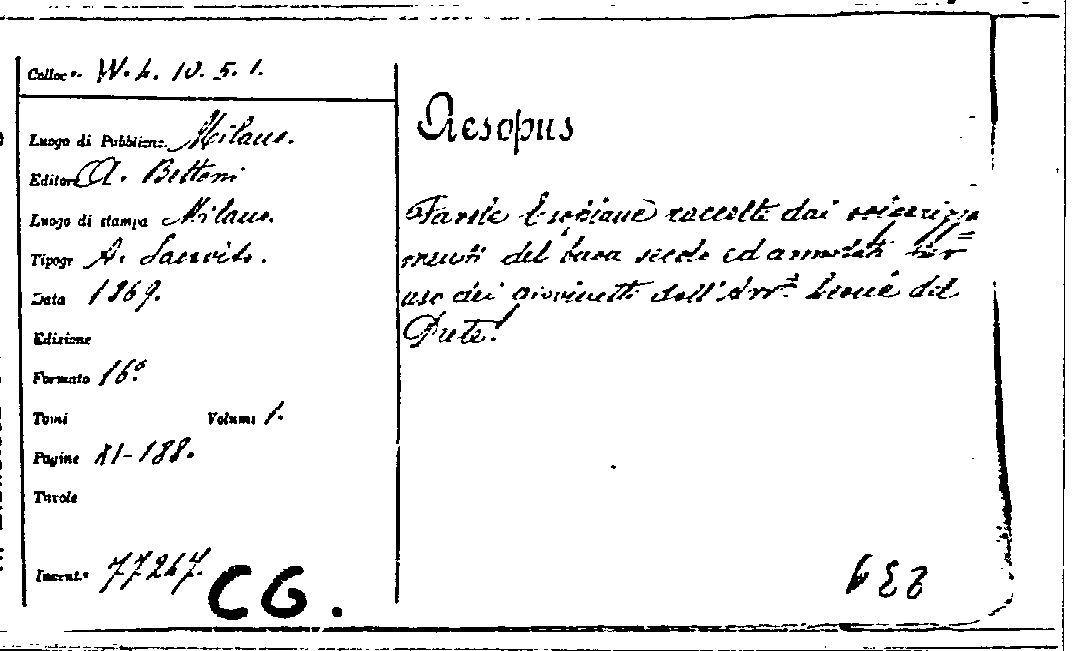 Colloc.ⁿᵉ W. L. 10. 5. 1.
Luogo di Pubblicaz. Milano.
Editore A. Bettoni
Luogo di stampa Milano.
Tipogr A. Saevito.
Data 1869.
Edizione
Formato 16°
Tomi Volumi 1.
Pagine XI-188.
Tavole
Invent.º 77247.
CG.
Aesopus
Favole Esopiane raccolte dai
menti del buon secolo ed annotate per
uso dei giovinetti dall'Arr. del
Prete.